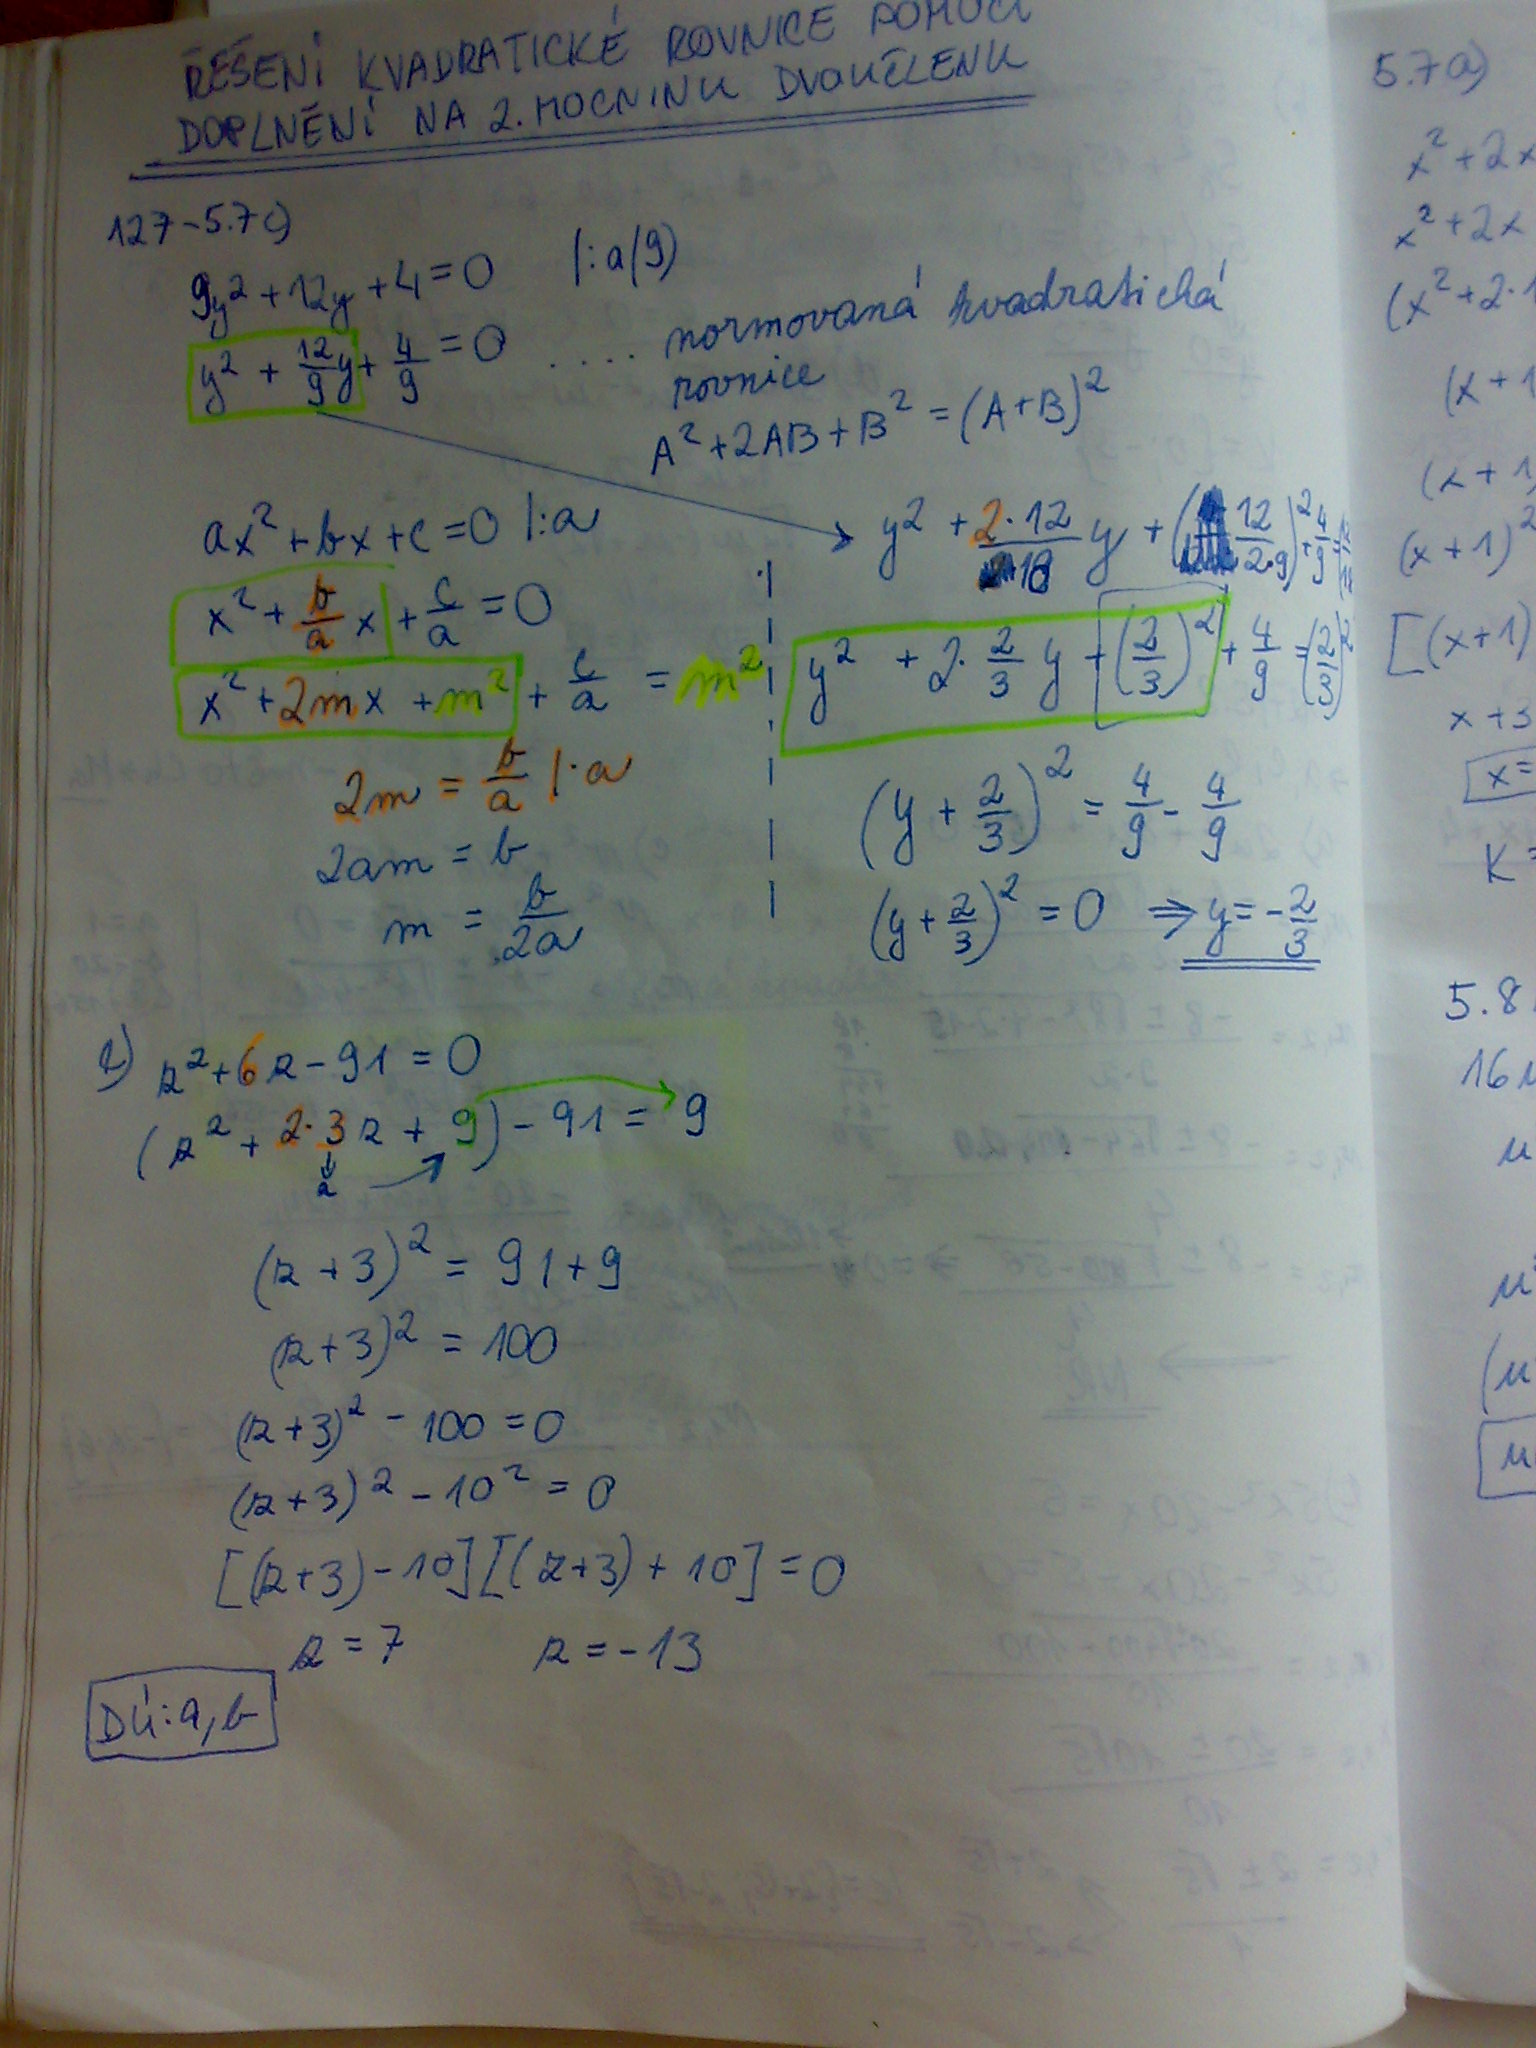 ŘEŠENÍ KVADRATICKÉ ROVNICE POMOCÍ
DOPLNĚNÍ NA 2. MOCNINU DVOUČLENU
127-5.7c)
9y² + 12y + 4 = 0 |:a(9)
y² + 12/9 y + 4/9 = 0 .... normovaná kvadratická
rovnice
A² + 2AB + B² = (A+B)²
ax² + bx + c = 0 |:a
x² + b/a x + c/a = 0
x² + 2mx + m² + c/a = m²
2m = b/a |·a
2am = b
m = b/2a
y² + 2·12/18 y + (12/2·9)² + 4/9 =
y² + 2·2/3 y + (2/3)² + 4/9 = (2/3)²
(y + 2/3)² = 4/9 - 4/9
(y + 2/3)² = 0 ⇒ y = -2/3
z² + 6z - 91 = 0
(z² + 2·3z + 9) - 91 = 9
(z + 3)² = 91 + 9
(z + 3)² = 100
(z+3)² - 100 = 0
(z+3)² - 10² = 0
[(z+3) - 10][(z+3) + 10] = 0
z = 7 z = -13
DÚ: a, b
5.7a)
x² + 2x
x² + 2x
(x² + 2·1
(x + 1
(x + 1)
(x + 1)²
[(x+1)
x + 3
x =
K =
5.8
16u
u
u²
(u
u